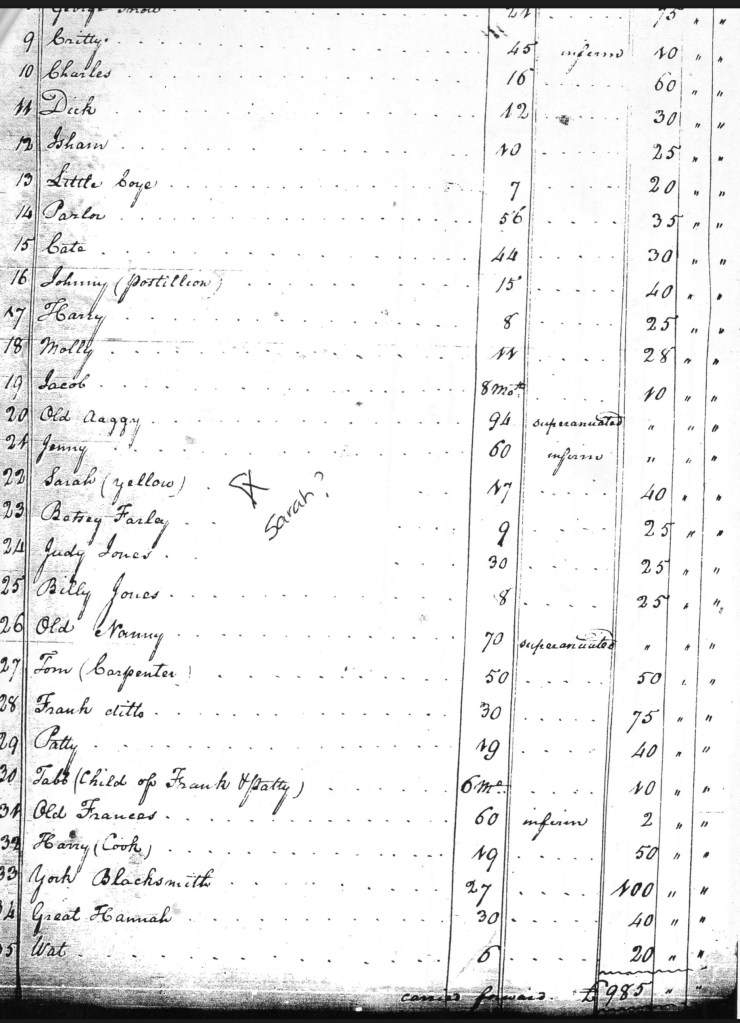 George Snow 21 75 " "
9 Critty 45 infirm 10 " "
10 Charles 16 60 " "
11 Dick 12 30 " "
12 Isham 10 25 " "
13 Little Coye 7 20 " "
14 Parlor 56 35 " "
15 Cate 44 30 " "
16 Johnny (postillion) 15 40 " "
17 Harry 8 25 " "
18 Molly 11 28 " "
19 Jacob 8 Mo.ths 10 " "
20 Old Aaggy 94 superanuated " " "
21 Jenny 60 infirm " " "
22 Sarah (yellow) 17 40 " "
Sarah?
23 Betsey Farley 9 25 " "
24 Judy Jones 30 25 " "
25 Billy Jones 8 25 " "
26 Old Nanny 70 superanuated " " "
27 Tom (Carpenter) 50 50 " "
28 Frank ditto 30 75 " "
29 Patty 19 40 " "
30 Tabb (Child of Frank & Patty) 6 Mo. 10 " "
31 Old Frances 60 infirm 2 " "
32 Harry (Cook) 19 50 " "
33 York Blacksmith 27 100 " "
34 Great Hannah 30 40 " "
35 Wat 6 20 " "
carried forward. £ 985 " "